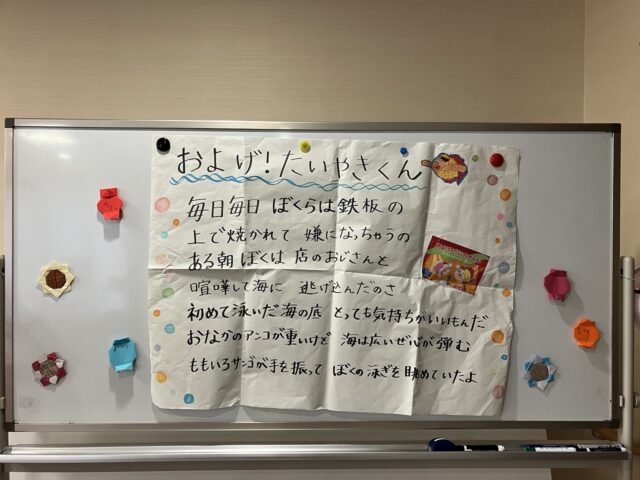 およげ！たいやきくん
毎日毎日 ぼくらは鉄板の
上で焼かれて 嫌になっちゃうの
ある朝 ぼくは 店のおじさんと
喧嘩して海に 逃げ込んだのさ
初めて泳いだ海の底 とっても気持ちがいいもんだ
おなかのアンコが重いけど 海は広いぜ心が弾む
ももいろサンゴが手を振って ぼくの泳ぎを眺めていたよ